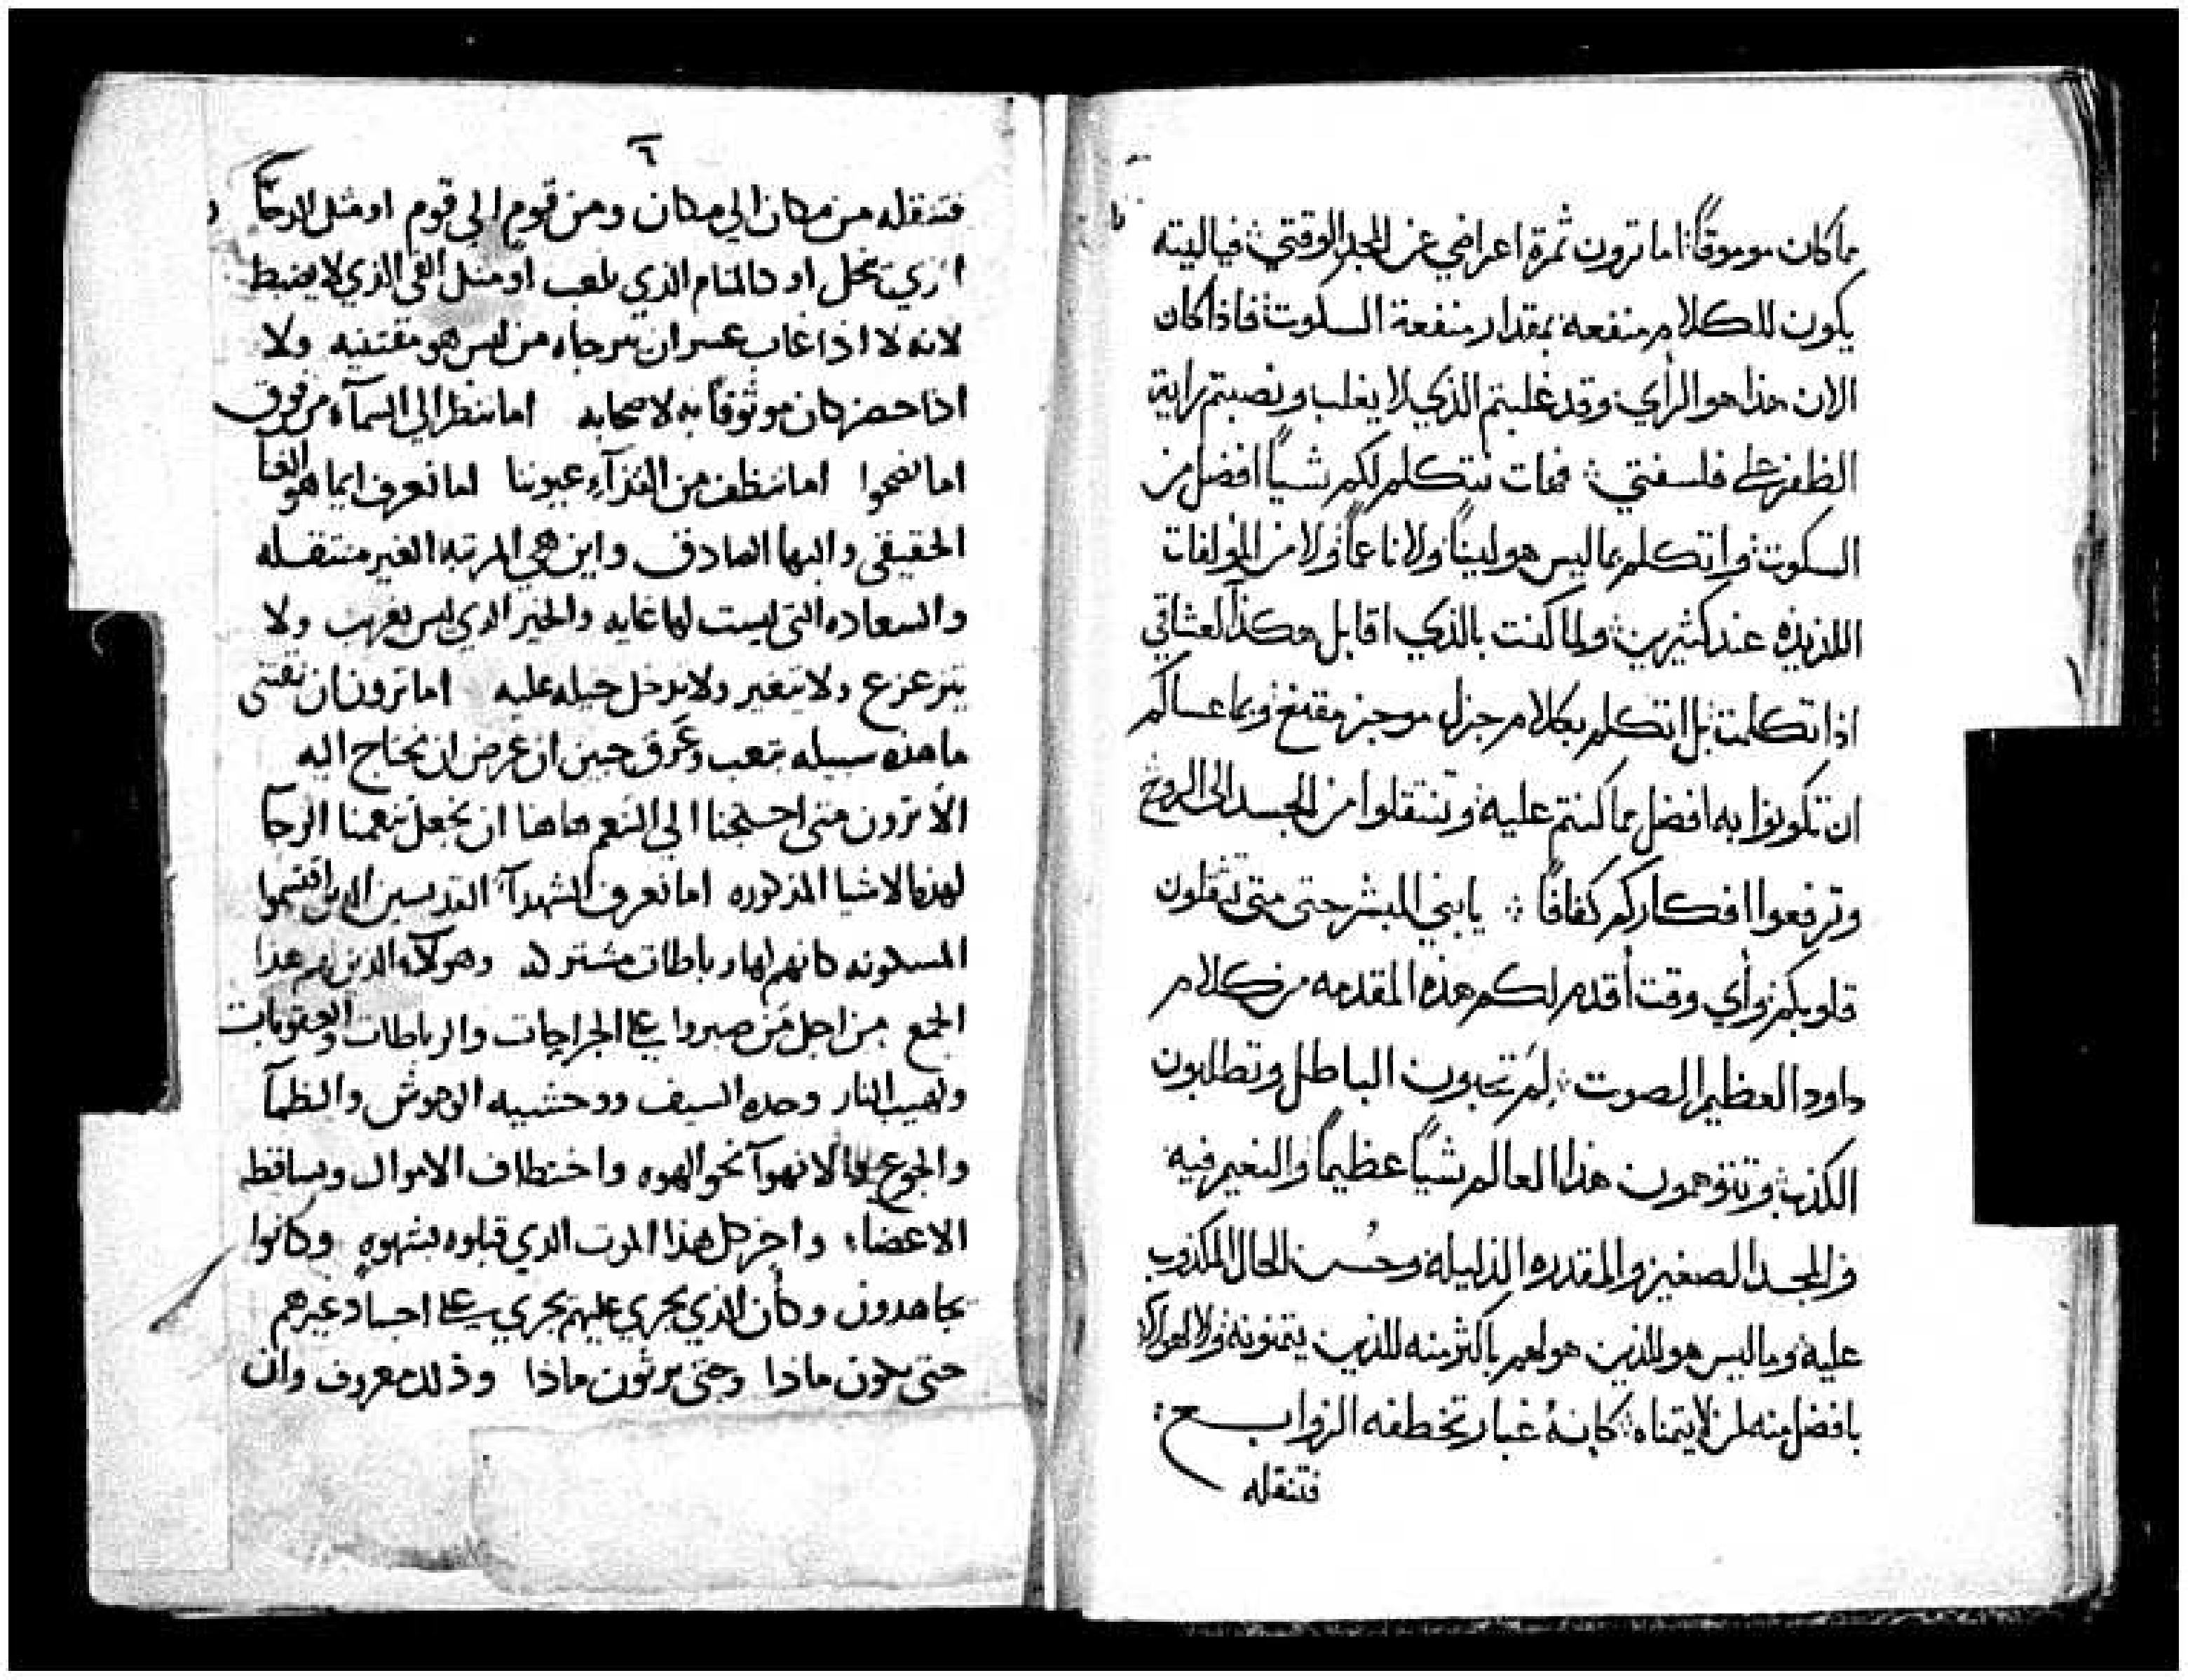 ما كان موموقًا اما ترون ثمرة اعراضي عن المجد الوقتي فياليته
يكون للكلام منفعه بمقدار منفعة السكوت فاذا كان
الان هذا هو الرأي وقد غلبتم الذي لا يغلب ونصبتم راية
الظفر على فلسفتي فهات نتكلم لكم شيأً افضل من
السكوت واتكلم بما ليس هو لينًا ولا ناعمًا ولا من المولفات
اللذيذه عند كثيرين ولما كنت بالذي اقابل هكذا لعشاقي
اذا تكلمت بل اتكلم بكلام جزل موجز مقنع وبما عساكم
ان تكونوا به افضل مما كنتم عليه وتنتقلوا من الجسد الى الروح
وترفعوا افكاركم كفافًا يا بني البشر حتى متى تثقلون
قلوبكم وأي وقت أقدم لكم هذه المقدمه من كلام
داود العظيم الصوت لِمَ تحبون الباطل وتطلبون
الكذب وتتوهمون هذا العالم شيأً عظيمًا والنعيم فيه
والمجد الصغير والمقدره الذليلة وحُسن الحال المكذوب
عليه وما ليس هو للذين هو لهم باكثر منه للذين يتمنونه ولا لهولاء
بافضل منه لمن لا يتمناه كانهُ غبار تخطفه الزوابع
فتنقله
٦
فتنقله من مكان الي مكان ومن قوم الي قوم او مثل الدخآ
او كالمنام الذي يلعب او مثل الفي الذي لا يضبط
لانه لا اذا غاب عسر ان يترجاه من ليس هو مقتنيه ولا
اذا حضر كان موثوقًا به لاصحابه اما ننظر الي السمآء من فوق
اما نصحوا اما ننظف من القذآء عيوننا اما نعرف ايما هو الغنا
الحقيقي والبها الصادق واين هي المرتبه الغير منتقله
والسعاده التي ليست لها غايه والخير الذي ليس بغريب ولا
يتزعزع ولا يتغير ولا يدخل حيله عليه اما ترون ان نقتني
ما هذه سبيله بتعب وعَرَق جبين ان عرض ان نحتاج اليه
الا ترون متى احتجنا الي التنعم هاهنا ان نجعل تنعمنا الرجآ
لهذه الاشيا المذكوره اما نعرف الشهدآ القديسين الذين اقتسموا
المسكونه كانهم لها رباطات مشتركه وهولآء الذين لهم هذا
الجمع من اجل مَن صبروا على الجراحات والرباطات والعقوبات
ولهيب النار وحده السيف ووحشيه الوحوش والظمآ
والجوع والانهوآ نحو الهوه واختطاف الاموال وتساقط
الاعضاء واخر كل هذا الموت الذي قبلوه بشهوهٍ وكانوا
يجاهدون وكأن الذي يجري عليهم يجري على اجساد غيرهم
حتى يكون ماذا وحتى يرثون ماذا وذلك معروف وان